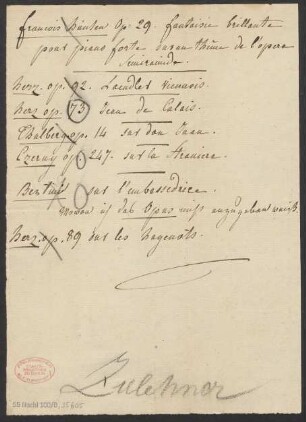 François Hünten Op. 29. fantaisie brillante
pour piano forte sur un thême de l'opera
Semiramide.
Herz. op. 92. Laendler viennois.
Herz op. 73 Jean de Calais.
Thalberg op. 14 sur don Juan.
Czerny op. 247. sur la Straniera
Bertini sur l'ambassadrice.
wovon ich das Opus nicht anzugeben weiß.
Herz. op. 89 sur les hugenots.
Zulehner